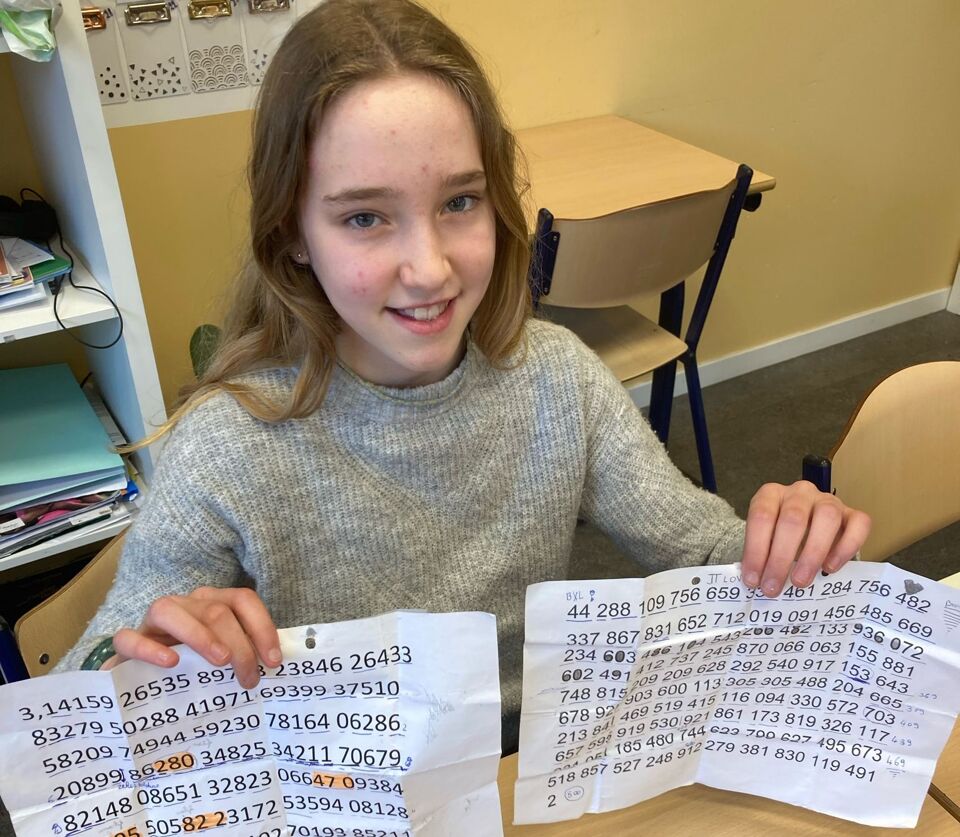 3,14159 26535 897 23846 26433
83279 50288 41971 69399 37510
58209 74944 59230 78164 06286
20899 86280 34825 34211 70679
82148 08651 32823 06647 09384
95 50582 23172 53594 08128
102 70193 85211
BXL
44 288 109 756 659 461 284 756 482
337 867 831 652 712 019 091 456 485 669
234 603 133 936 072
602 491 412 737 245 870 066 063 155 881
748 815 209 209 628 292 540 917 153 643
678 92 903 600 113 305 305 488 204 665 379
213 84 469 519 415 116 094 330 572 703 409
657 59 919 530 921 861 173 819 326 117 439
185 480 744 495 673 469
518 857 527 248 912 279 381 830 119 491
2 500